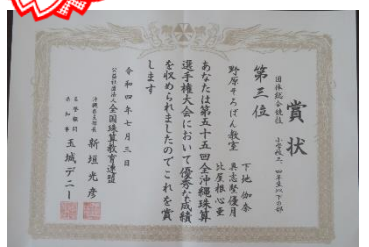 賞状
団体総合競技 小学校三、四年生以下の部
第三位
野原そろばん教室
下地 伽奈
奥志堅優月
比屋根心亜
あなたは第五十五回全沖縄珠算
選手権大会において優秀な成績
を収められましたのでこれを賞
します
令和四年七月三日
公益社団法人全国珠算教育連盟
沖縄県支部長 新垣光彦
名誉顧問
県知事 玉城デニー